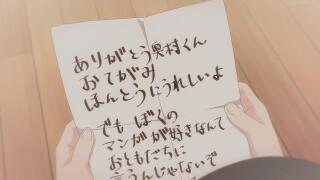 ありがとう奥村くん
おてがみ
ほんとうにうれしいよ
でもぼくの
マンガが好きなんて
おともだちに
言うんじゃないで